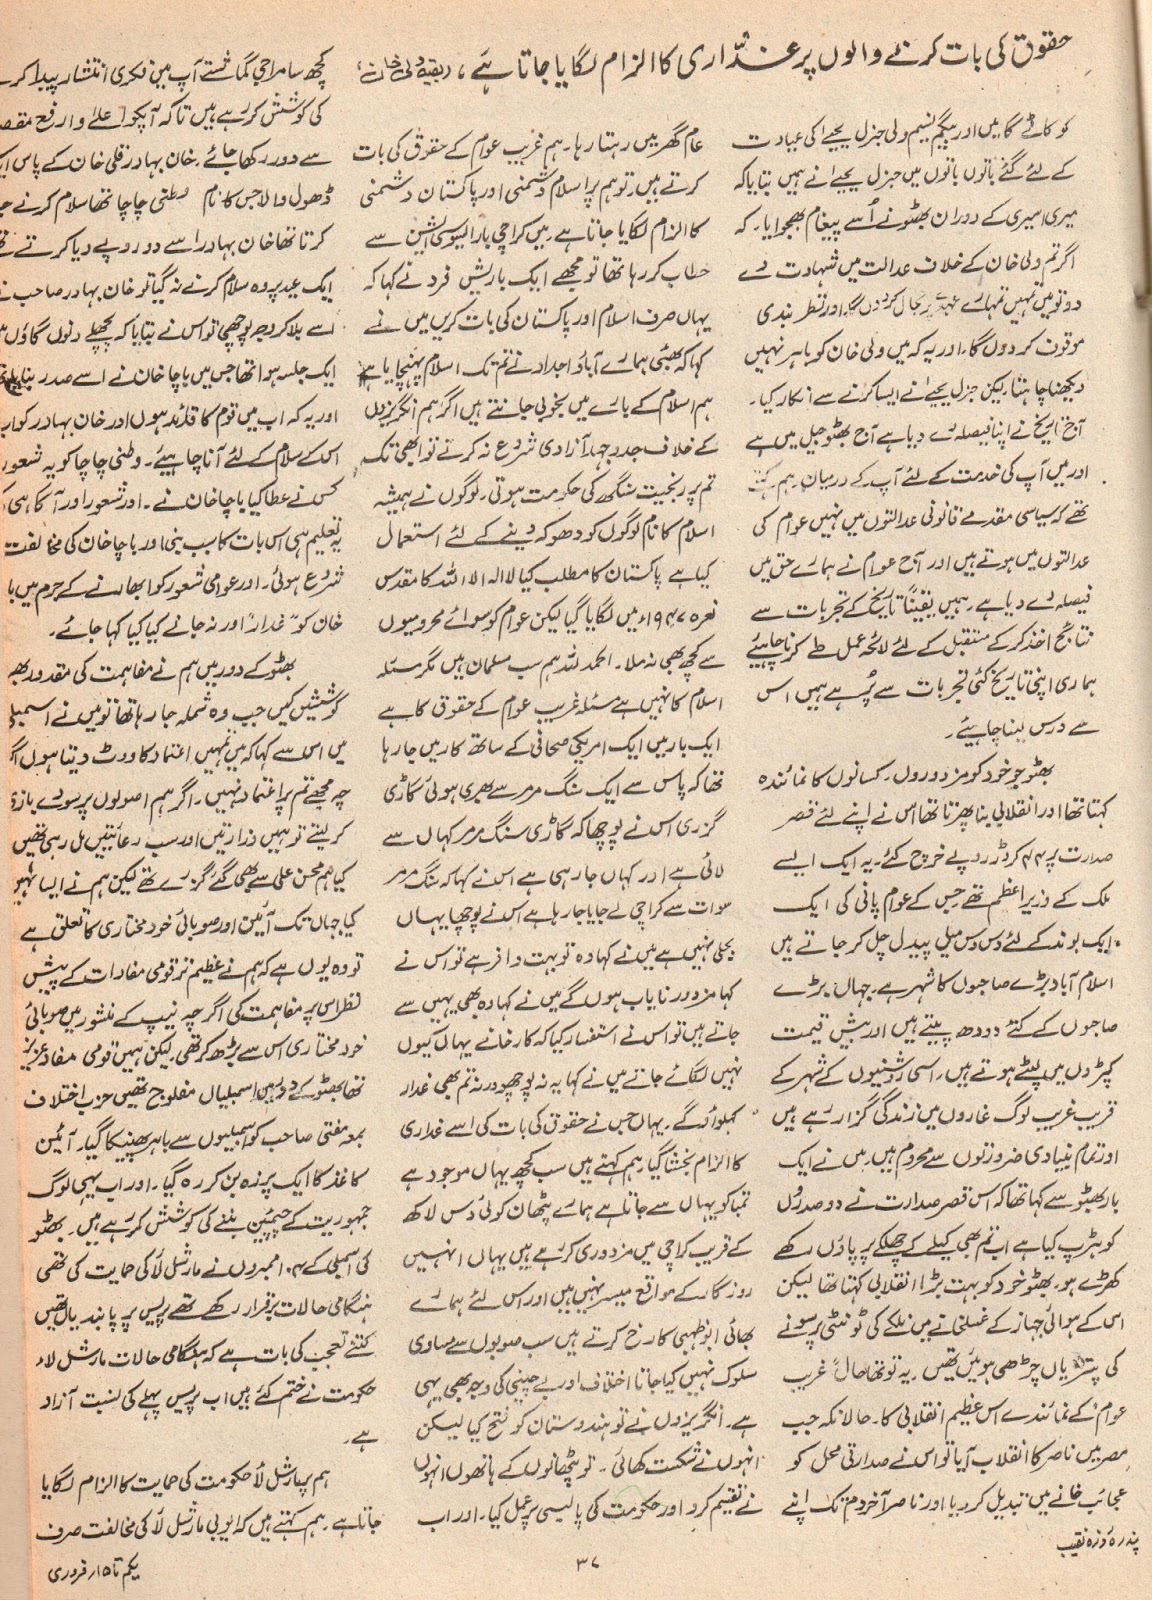 حقوق کی بات کرنے والوں پر غدّاری کا الزام لگایا جاتا ہے، (بقیہ ولی خان)
کو کاٹے گا میں اور بیگم نسیم ولی جنرل یحییٰ کی عیادت
کے لئے گئے باتوں باتوں میں جنرل یحییٰ نے ہمیں بتایا کہ
میری اسیری کے دوران بھٹو نے اُسے پیغام بھجوایا۔ کہ
اگر تم ولی خان کے خلاف عدالت میں شہادت دے
دو تو میں تمہیں تمہارے عہدے پر بحال کر دوں گا اور نظر بندی
موقوف کر دوں گا۔ اور یہ کہ میں ولی خان کو باہر نہیں
دیکھنا چاہتا لیکن جنرل یحییٰ نے ایسا کرنے سے انکار کیا۔
آج تاریخ نے اپنا فیصلہ دے دیا ہے آج بھٹو جیل میں ہے
اور میں آپ کی خدمت کے لئے آپ کے درمیان۔ ہم کہتے
تھے کہ سیاسی مقدمے قانونی عدالتوں میں نہیں عوام کی
عدالتوں میں ہوتے ہیں اور آج عوام نے ہمارے حق میں
فیصلہ دے دیا ہے۔ ہمیں یقیناً تاریخ کے تجربات سے
نتائج اخذ کر کے مستقبل کے لئے لائحہ عمل طے کرنا چاہیئے
ہماری اپنی تاریخ کئی تجربات سے پُر ہے ہمیں اس
سے درس لینا چاہیئے۔
بھٹو جو خود کو مزدوروں۔ کسانوں کا نمائندہ
کہتا تھا اور انقلابی بنا پھرتا تھا اس نے اپنے لئے قصر
صدارت پر ۴۴ کروڑ روپے خرچ کئے۔ یہ ایک ایسے
ملک کے وزیر اعظم تھے جس کے عوام پانی کی ایک
ایک بوند کے لئے دس دس میل پیدل چل کر جاتے ہیں
اسلام آباد بڑے صاحبوں کا شہر ہے۔ جہاں بڑے
صاحبوں کے کتے دودھ پیتے ہیں اور بیش قیمت
کپڑوں میں لپٹے ہوتے ہیں۔ اسی روشنیوں کے شہر کے
قریب غریب لوگ غاروں میں زندگی گزار رہے ہیں
اور تمام بنیادی ضرورتوں سے محروم ہیں میں نے ایک
بار بھٹو سے کہا تھا کہ اس قصر صدارت نے دو صدروں
کو ہڑپ کیا ہے اب تم بھی کیلے کے چھلکے پر پاؤں رکھے
کھڑے ہو۔ بھٹو خود کو بہت بڑا انقلابی کہتا تھا لیکن
اس کے ہوائی جہاز کے غسلخانے میں نلکے کی ٹونٹی پر سونے
کی پتریاں چڑھی ہوئیں تھیں۔ یہ تو تھا حال غریب
عوام کے نمائندے اس عظیم انقلابی کا۔ حالانکہ جب
مصر میں ناصر کا انقلاب آیا تو اس نے صدارتی محل کو
عجائب خانے میں تبدیل کر دیا اور ناصر آخر دم تک اپنے
عام گھر میں رہتا رہا۔ ہم غریب عوام کے حقوق کی بات
کرتے ہیں۔ تو ہم پر اسلام دشمنی اور پاکستان دشمنی
کا الزام لگایا جاتا ہے۔ میں کراچی بار ایسوسی ایشن سے
خطاب کر رہا تھا تو مجھے ایک باریش فرد نے کہا کہ
یہاں صرف اسلام اور پاکستان کی بات کریں میں نے
کہا کہ بھئی ہمارے آباؤ اجداد نے تم تک اسلام پہنچایا ہے
ہم اسلام کے بارے میں بخوبی جانتے ہیں اگر ہم انگریزوں
کے خلاف جدوجہد آزادی شروع نہ کرتے تو ابھی تک
تم پر رنجیت سنگھ کی حکومت ہوتی۔ لوگوں نے ہمیشہ
اسلام کا نام لوگوں کو دھوکہ دینے کے لئے استعمال
کیا ہے پاکستان کا مطلب کیا لا الہ الا اللہ کا مقدس
نعرہ ۱۹۴۷ء میں لگایا گیا لیکن عوام کو سوائے محرومیوں
سے کچھ بھی نہ ملا۔ الحمد للہ ہم سب مسلمان ہیں مگر مسئلہ
اسلام کا نہیں ہے مسئلہ غریب عوام کے حقوق کا ہے
ایک بار میں ایک امریکی صحافی کے ساتھ کار میں جا رہا
تھا کہ پاس سے ایک سنگ مرمر سے بھری ہوئی گاڑی
گزری اس نے پوچھا کہ گاڑی سنگ مرمر کہاں سے
لائی ہے اور کہاں جا رہی ہے اس نے کہا کہ سنگ مرمر
سوات سے کراچی لے جایا جا رہا ہے اس نے پوچھا یہاں
بجلی نہیں ہے میں نے کہا وہ تو بہت وافر ہے تو اس نے
کہا مزدور نایاب ہوں گے میں نے کہا وہ بھی یہیں سے
جاتے ہیں تو اس نے استفسار کیا کہ کارخانے یہاں کیوں
نہیں لگائے جاتے میں نے کہا یہ نہ پوچھو ورنہ تم بھی غدار
کہلواؤ گے۔ یہاں جس نے حقوق کی بات کی اسے غداری
کا الزام بخشا گیا۔ ہم کہتے ہیں سب کچھ یہاں موجود ہے
تمباکو یہاں سے جاتا ہے ہمارے پٹھان کوئی دس لاکھ
کے قریب کراچی میں مزدوری کر رہے ہیں یہاں انہیں
روزگار کے مواقع میسر نہیں ہیں اور اس لئے ہمارے
بھائی ابوظہبی کا رخ کرتے ہیں سب صوبوں سے مساوی
سلوک نہیں کیا جاتا اختلاف اور بے چینی کی وجہ بھی یہی
ہے۔ انگریزوں نے تو ہندوستان کو فتح کیا لیکن
انہوں نے شکست کھائی۔ تو پٹھانوں کے ہاتھوں انہوں
نے تقسیم کرو اور حکومت کی پالیسی پر عمل کیا۔ اور اب
کچھ سامراجی گماشتے آپ میں فکری انتشار پیدا کرنے
کی کوشش کر رہے ہیں تاکہ آپکو اعلیٰ و ارفع
سے دور رکھا جائے۔ خان بہادر قلی خان کے پاس
ڈھول والا جس کا نام وطنی چاچا تھا سلام کرنے
کرتا تھا خان بہادر اسے دو روپے دیا کرتے
ایک عید پر وہ سلام کرنے نہ گیا تو خان بہادر صاحب نے
اسے بلا کر وجہ پوچھی تو اس نے بتایا کہ پچھلے دنوں گاؤں
ایک جلسہ ہوا تھا جس میں باچا خان نے اسے صدر بنایا
اور یہ کہ اب میں قوم کا قائد ہوں اور خان بہادر کو
اس کے سلام کے لئے آنا چاہیئے۔ وطنی چاچا کو یہ شعور
کس نے عطا کیا باچا خان نے۔ اور شعور اور آگاہی کی
یہ تعلیم ہی اس بات کا سبب بنی اور باچا خان کی مخالفت
شروع ہوئی۔ اور عوامی شعور کو ابھارنے کے جرم میں
خان کو "غدار" اور نہ جانے کیا کیا کہا جائے۔
بھٹو کے دور میں ہم نے مفاہمت کی مقدور بھر
کوششیں کیں جب وہ شملہ جا رہا تھا تو میں نے اسمبلی
میں اس سے کہا کہ میں تمہیں اعتماد کا ووٹ دیتا ہوں
چہ مجھے تم پر اعتماد نہیں۔ اگر ہم اصولوں پر سودے بازی
کر لیتے تو ہمیں وزارتیں اور سب رعائتیں مل رہی تھیں
کیا ہم محسن علی سے بھی گئے گزرے تھے لیکن ہم نے ایسا نہیں
کیا جہاں تک آئین اور صوبائی خود مختاری کا تعلق ہے
تو وہ یوں ہے کہ ہم نے عظیم تر قومی مفادات کے پیش
نظر اس پر مفاہمت کی اگرچہ نیپ کے منشور میں صوبائی
خود مختاری اس سے بڑھ کر تھی۔ لیکن ہمیں قومی مفاد عزیز
تھا بھٹو کے دور میں اسمبلیاں مفلوج تھیں حزب اختلاف
بمعہ مفتی صاحب کو اسمبلیوں سے باہر پھینکا گیا۔ آئین
کاغذ کا ایک پرزہ بن کر رہ گیا۔ اور اب یہی لوگ
جمہوریت کے چمپئن بننے کی کوشش کر رہے ہیں۔ بھٹو
کی اسمبلی کے ممبروں نے مارشل لا کی حمایت کی تھی
ہنگامی حالات برقرار رکھے تھے پریس پر پابندیاں تھیں
کتنے تعجب کی بات ہے کہ ہنگامی حالات مارشل لاء
حکومت نے ختم کئے ہیں اب پریس پہلے کی نسبت آزاد
ہے۔
ہم پر مارشل لا حکومت کی حمایت کا الزام لگایا
جاتا ہے۔ ہم کہتے ہیں کہ ایوبی مارشل لا کی مخالفت صرف
پندرہ روزہ نقیب
۳۷
یکم تا ۱۵ر فروری